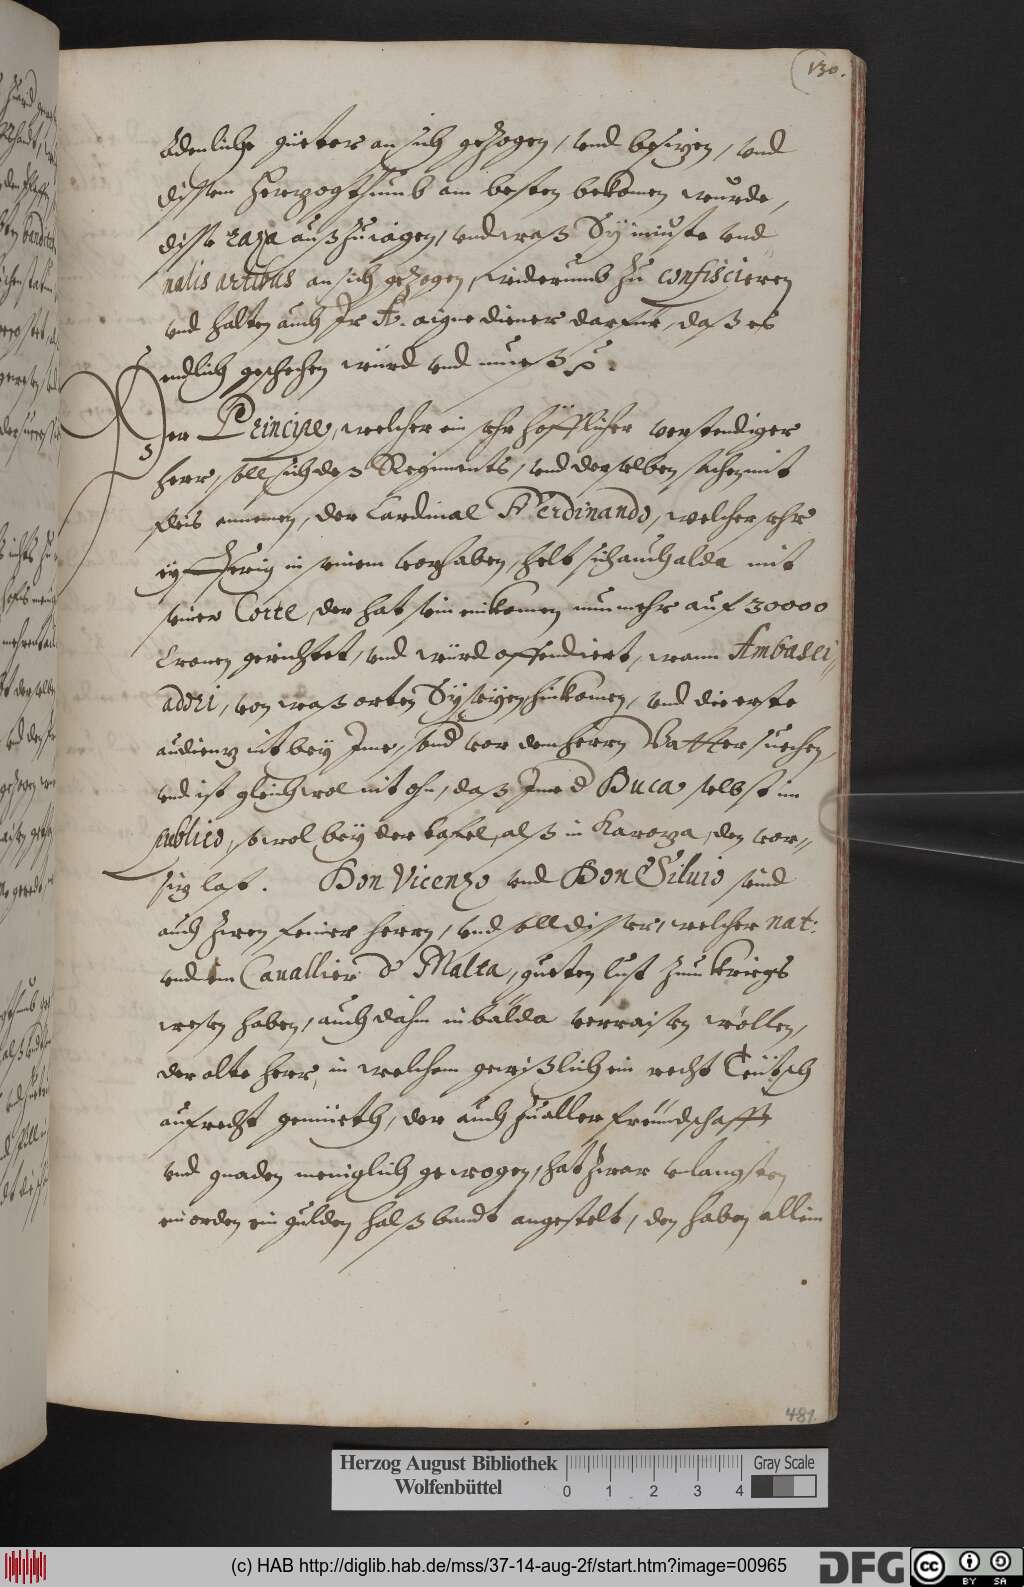 130.
ädenliche güeter an sich gezogen, vnd besizen, vnd
dissem Herzogthumb am besten bekomen wurde,
disse raza außzuiagen, vnd waß Sy iniuste vnd
malis artibus an sich gezogen, widerumb zu confiscieren
vnd halten auch Jr A. aigne diener darfur, daß es
endlich geschehen würd vnd mueß
Der Principe, welcher ein sehr höfflicher verstendiger
herr, soll sich deß Regiments, vnd derselben sachen mit
fleis annemen, der Cardinal Ferdinando, welcher sehr
eyfferig in seinem vorhaben, helt sich auch alda mit
seiner Corte, der hat sein einkomen nunmehr auf 30000
Cronen gerichtet, vnd würd offendiert, wann Ambasci,,
adori, von waß orten Sy seyen, hinkomen, vnd die erste
audienz nit bey Jme, sond vor dem herrn Vatter suechen,
vnd ist gleichwol nit ohn, daß Jme d Duca selbst in
publico, sowol bey der tafel, alß in Karoza, den vor,,
siz last. Don Vicenzo vnd Don Siluio seind
auch zwen feiner herrn, vnd soll disser, welcher nat:
vnd ein Cauallier d Malta, gueten lust zum kriegs
wesen haben, auch dahin in bälda verraisen wöllen,
der alte herr, in welchem gewißlich ein recht Teütsch
aufrecht gemüeth, der auch zu aller freündschafft
vnd gnaden meniglich gewogen, hat zwar vnlangsten
ein orden ein gulden halßbandt angestelt, den haben allein
481.
Herzog August Bibliothek
Wolfenbüttel
0 1 2 3 4
Gray Scale
(c) HAB http://diglib.hab.de/mss/37-14-aug-2f/start.htm?image=00965
DFG
cc BY SA